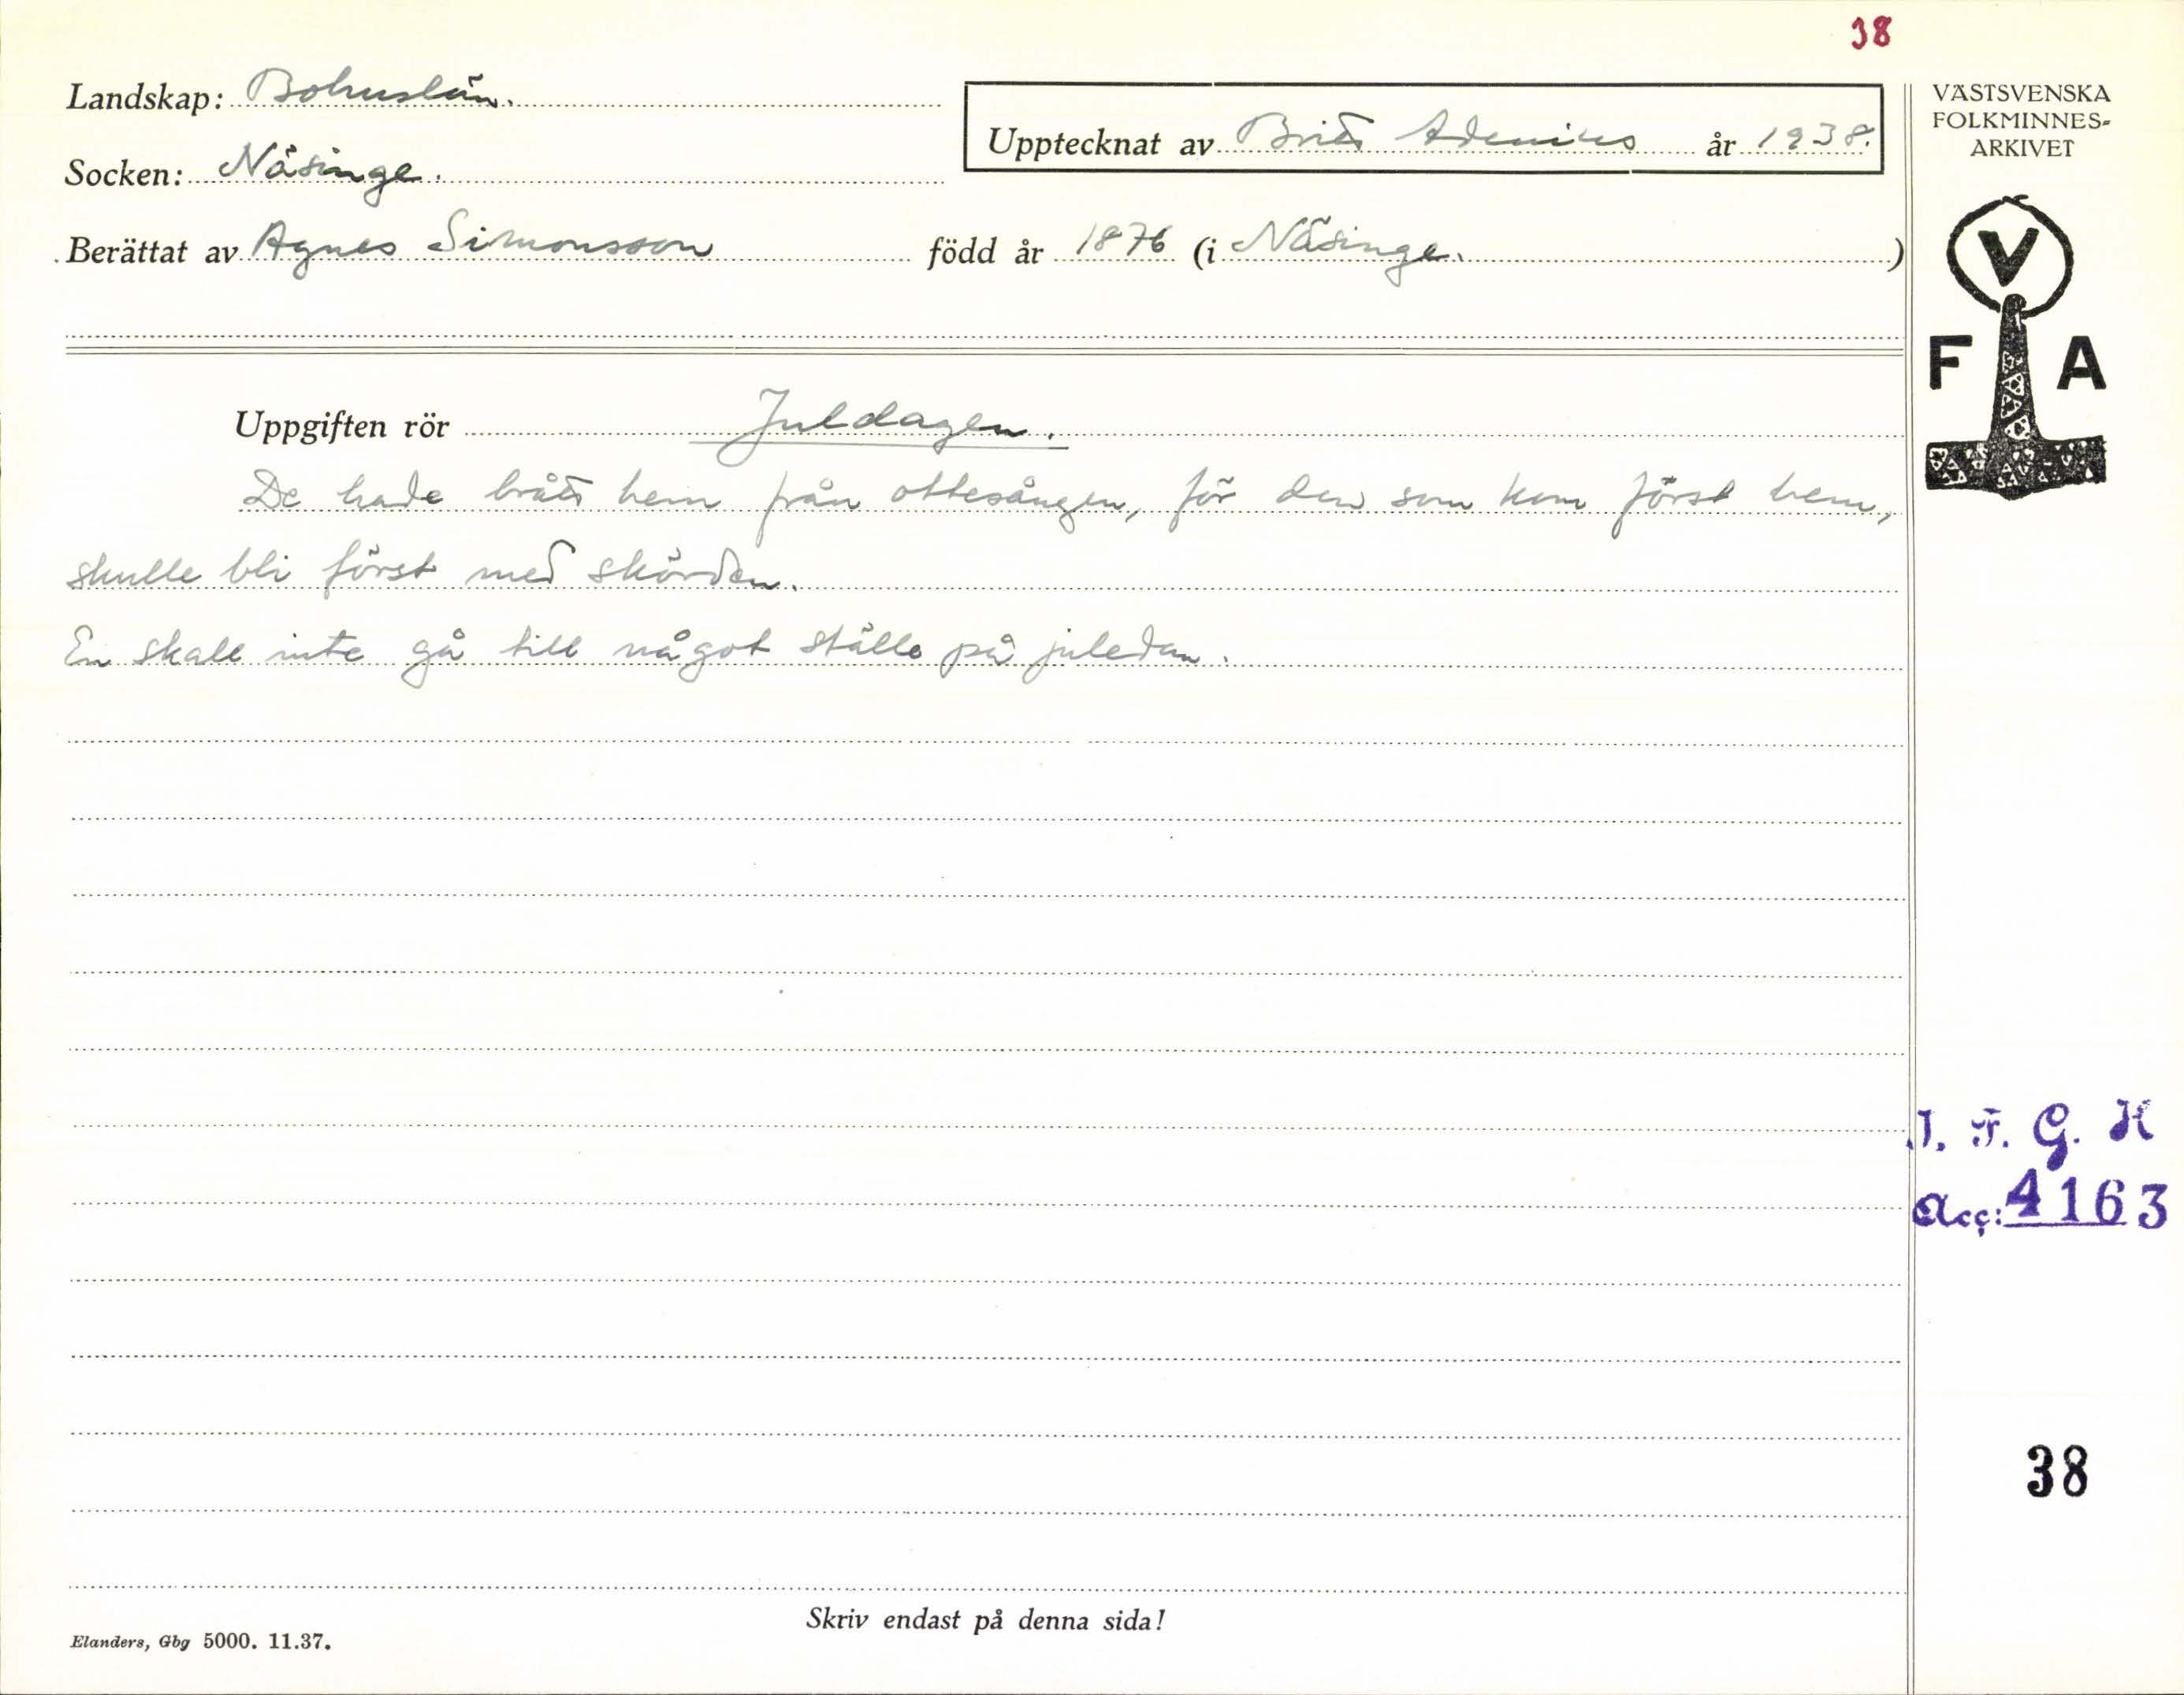 38
Landskap: Bohuslän.
Upptecknat av Britt Adenius år 1938.
Socken: Näsinge.
Berättat av Agnes Simonsson född år 1876 (i Näsinge. )
VÄSTSVENSKA
FOLKMINNES-
ARKIVET
V
F A
Uppgiften rör Juldagen.
De hade brått hem från ottesången, för den som kom först hem,
skulle bli först med skörden.
En skall inte gå till något ställe på juledan.
I. F. G. H
Acc: 4163
38
Skriv endast på denna sida!
Elanders, Gbg 5000. 11.37.